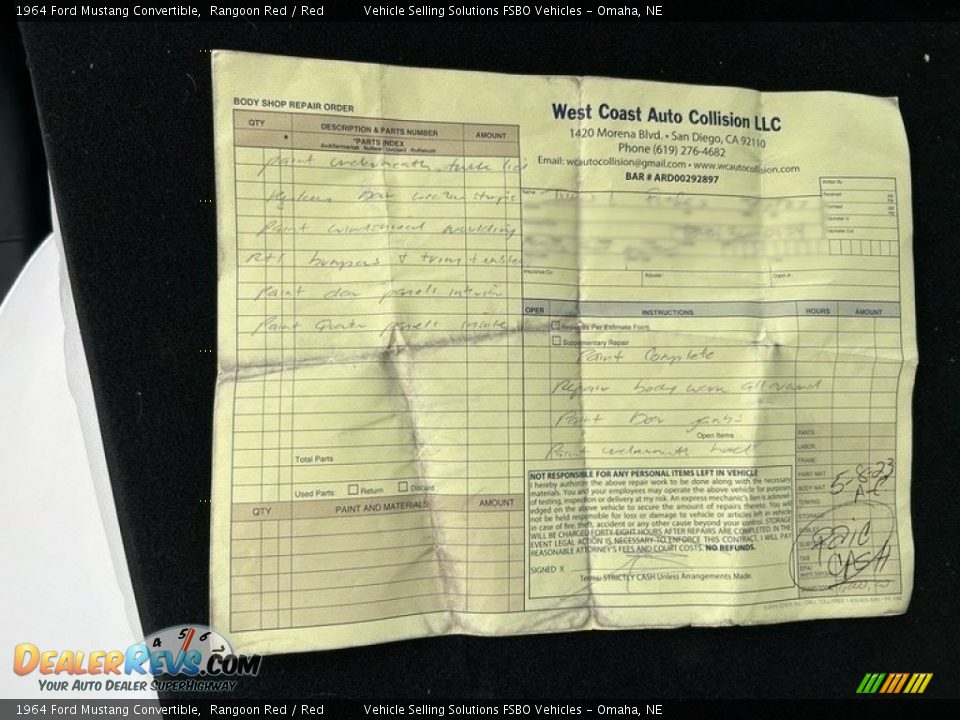 1964 Ford Mustang Convertible,  Rangoon Red / Red          Vehicle Selling Solutions FSBO Vehicles - Omaha, NE
BODY SHOP REPAIR ORDER
QTY DESCRIPTION & PARTS NUMBER AMOUNT
*PARTS INDEX
Paint underneath trunk lid
Replace Door weather strips
Paint windshield moulding
R+I bumpers & trim + emblems
Paint door panels interior
Paint Quarter panels inside
Total Parts
Used Parts: Return Discard
QTY PAINT AND MATERIALS AMOUNT
West Coast Auto Collision LLC
1420 Morena Blvd. • San Diego, CA 92110
Phone (619) 276-4682
Email: wcautocollision@gmail.com • www.wcautocollision.com
BAR # ARD00292897
Name
Written By
Received
Promised
Odometer In
Odometer Out
Insurance Co: Adjuster: Claim #:
OPER INSTRUCTIONS HOURS AMOUNT
Repairs Per Estimate Form
Supplementary Repair
Paint Complete
Repair body work all around
Paint Door jambs
Open Items
Paint underneath hood
PARTS
LABOR
FRAME
PAINT MAT.
BODY MAT.
TOWING
STORAGE
TAX
5-8-23
PAID
CASH
NOT RESPONSIBLE FOR ANY PERSONAL ITEMS LEFT IN VEHICLE
I hereby authorize the above repair work to be done along with the necessary
materials. You and your employees may operate the above vehicle for purposes
of testing, inspection or delivery at my risk. An express mechanic's lien is acknowl-
edged on the above vehicle to secure the amount of repairs thereto. You will
not be held responsible for loss or damage to vehicle or articles left in vehicle
in case of fire, theft, accident or any other cause beyond your control. STORAGE
WILL BE CHARGED FORTY-EIGHT HOURS AFTER REPAIRS ARE COMPLETED. IN THE
EVENT LEGAL ACTION IS NECESSARY TO ENFORCE THIS CONTRACT, I WILL PAY
REASONABLE ATTORNEY'S FEES AND COURT COSTS. NO REFUNDS.
SIGNED X
Terms: STRICTLY CASH Unless Arrangements Made.
4 5 6
DEALERREVS.COM
YOUR AUTO DEALER SUPERHIGHWAY
1964 Ford Mustang Convertible,  Rangoon Red / Red          Vehicle Selling Solutions FSBO Vehicles - Omaha, NE